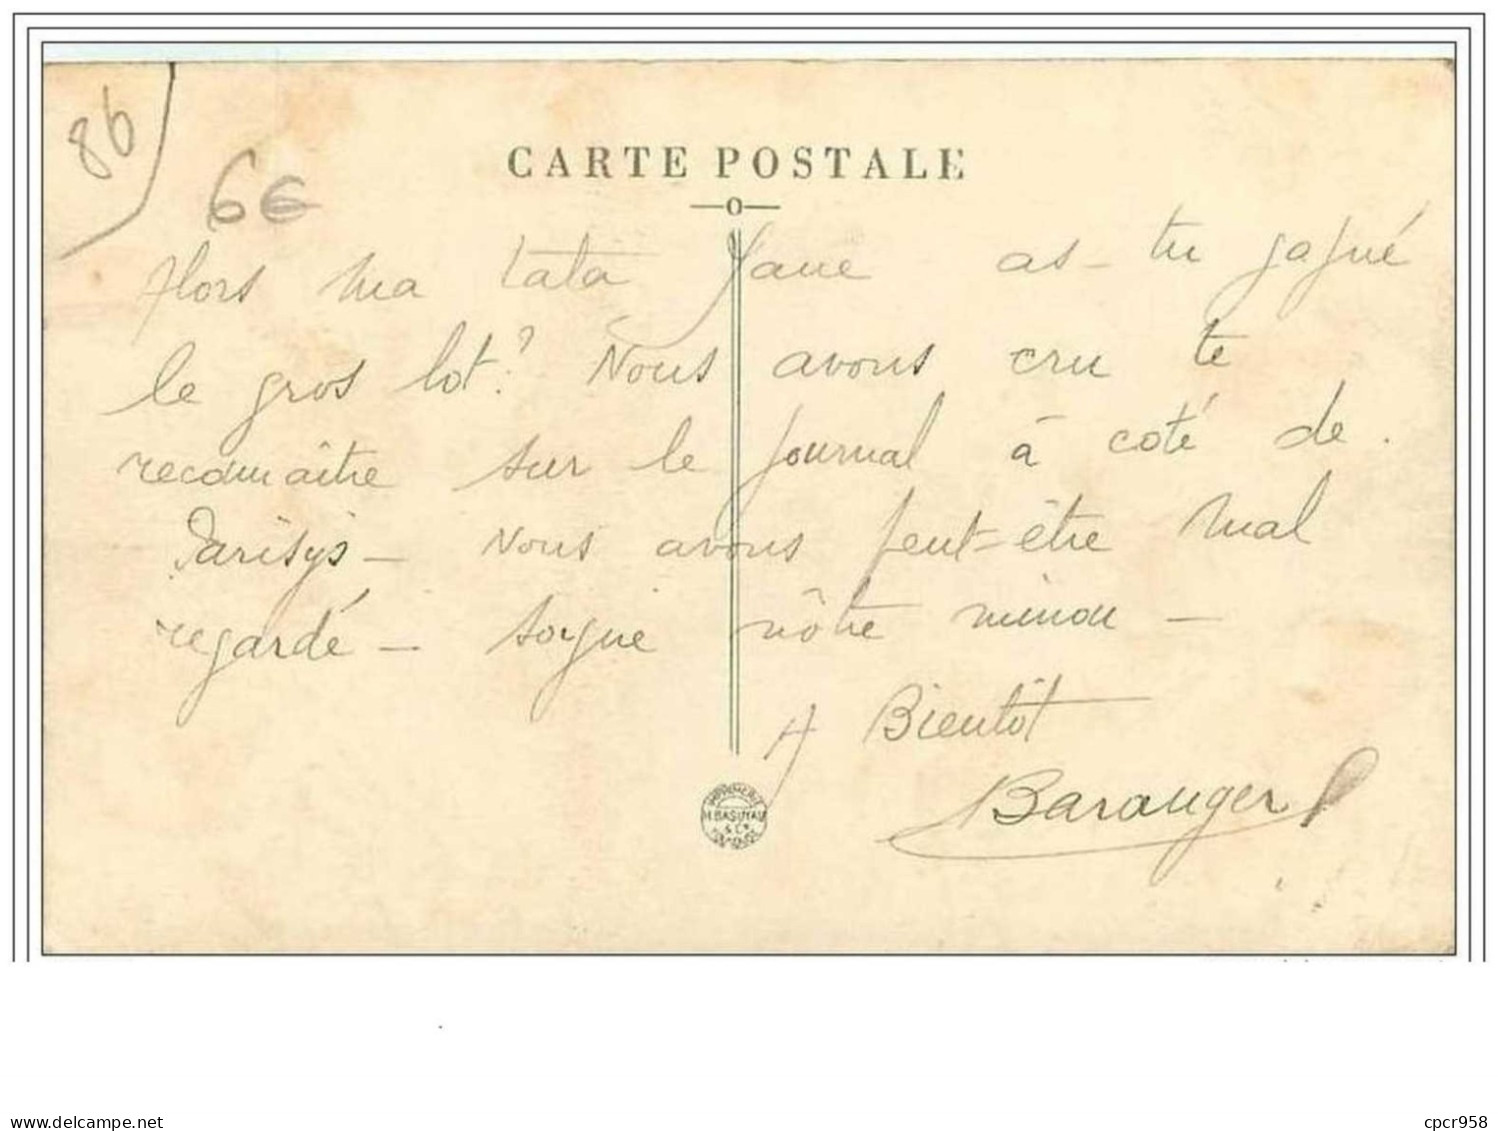 86
6€
CARTE POSTALE
Alors ma tata Jane as-tu gagné
le gros lot? Nous avons cru te
reconnaître sur le journal à coté de
Parisys - Nous avons peut-être mal
regardé - soigne nôtre minou -
A Bientôt
Baranger
IMPRIMERIE
H. BASUYAU
& Cie
TOULOUSE
delcampe.net
cpcr958